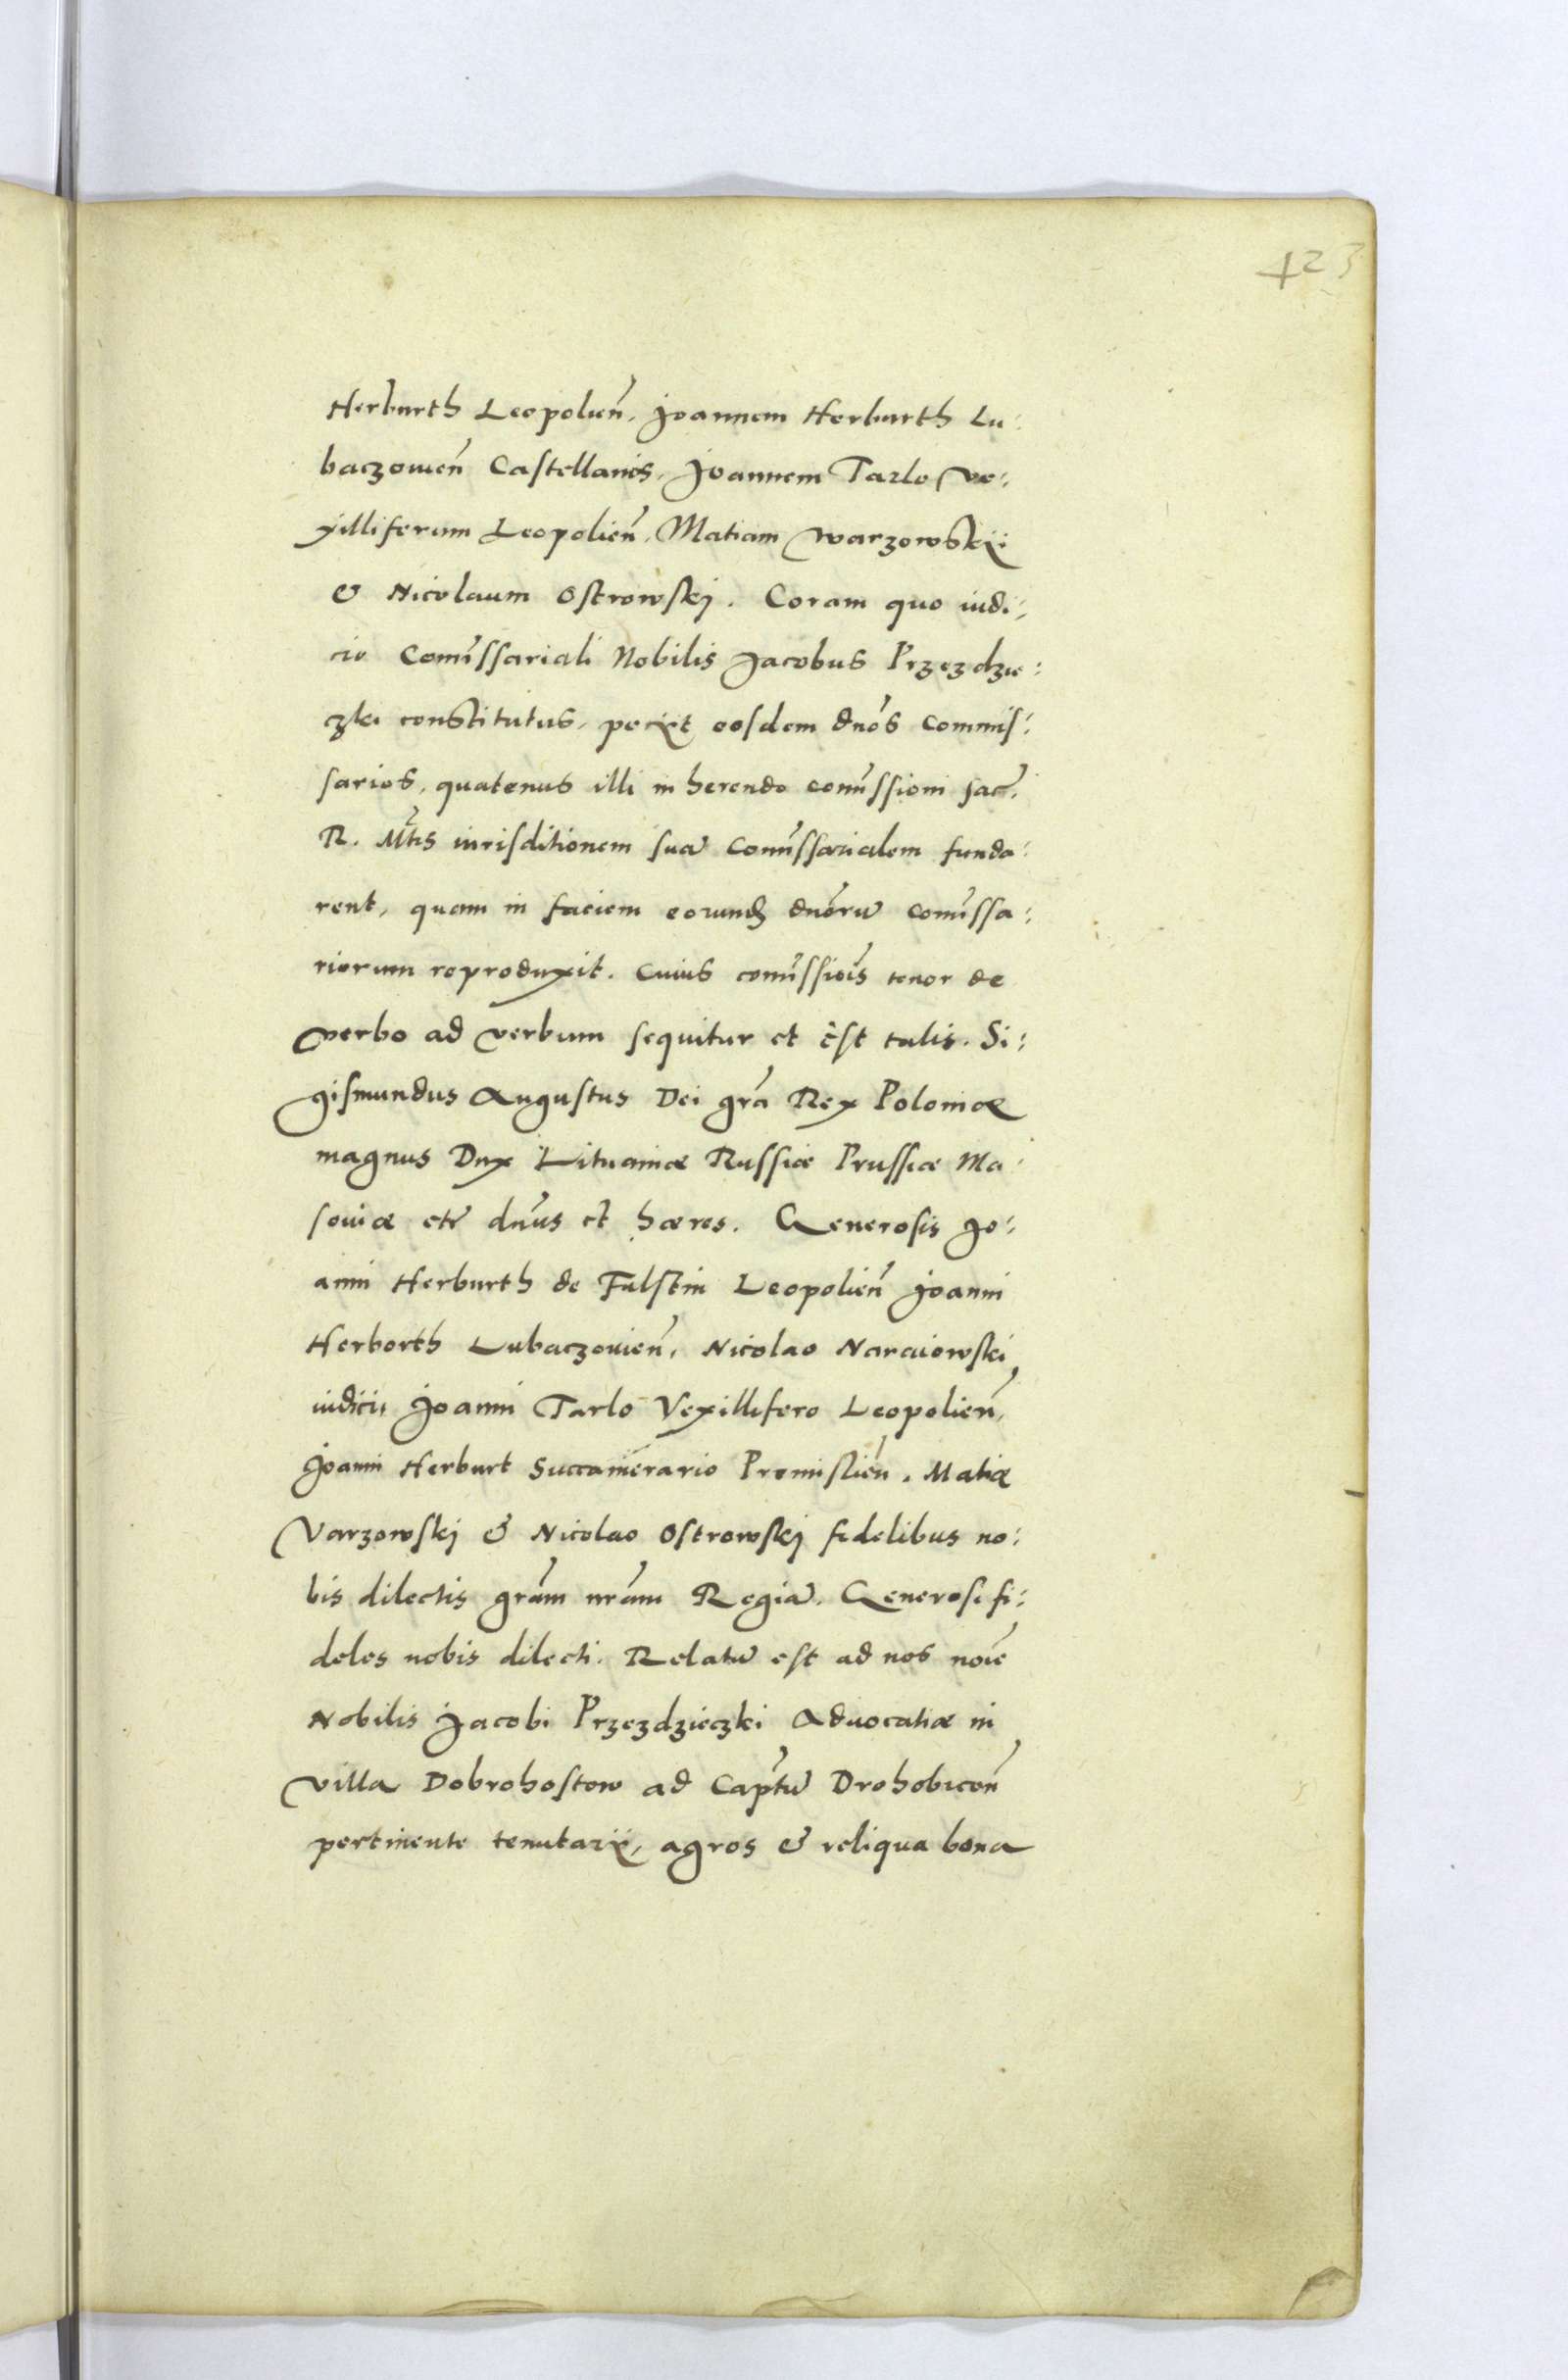 123
Herburth Leopolien̄, Joannem Herburth Lu:
baczouien̄ Castellanos, Joannem Tarlo ve:
xilliferum Leopolien̄, Matiam Warzowskij
& Nicolaum Ostrowskj. Coram quo iudi:
cio Com̄issariali Nobilis Jacobus Przezdzie:
czki constitutus, pecijt eosdem dnōs Commis:
sarios, quatenus illi inherendo com̄issioni sac̄.
R. Mtis iurisditionem suā Com̄issarialem funda:
rent, quam in faciem eorundꝫ dnōrū Com̄issa:
riorum reproduxit. Cuius com̄issiōis tenor de
verbo ad verbum sequitur et est talis. Si:
gismundus Augustus Dei grā Rex Poloniæ
magnus Dux Lituaniæ Russiæ Prussiæ Ma:
souiæ etc̄ dn̄us et hæres. Generosis Jo:
anni Herburth de Fulstin Leopolien̄ Joanni
Herborth Lubaczouien̄, Nicolao Naraiowski
iudici, Joanni Tarlo Vexillifero Leopolien̄,
Joanni Herburt Succamerario Premislien̄. Matiæ
Varzowskj & Nicolao Ostrowskj fidelibus no:
bis dilectis grām nrām Regiā. Generosi fi:
deles nobis dilecti. Relatū est ad nos noīe
Nobilis Jacobi Przezdzieczki Aduocatiæ in
villa Dobrohostow ad Cap̄tū Drohobicen̄
pertinente tenutarij, agros & reliqua bona